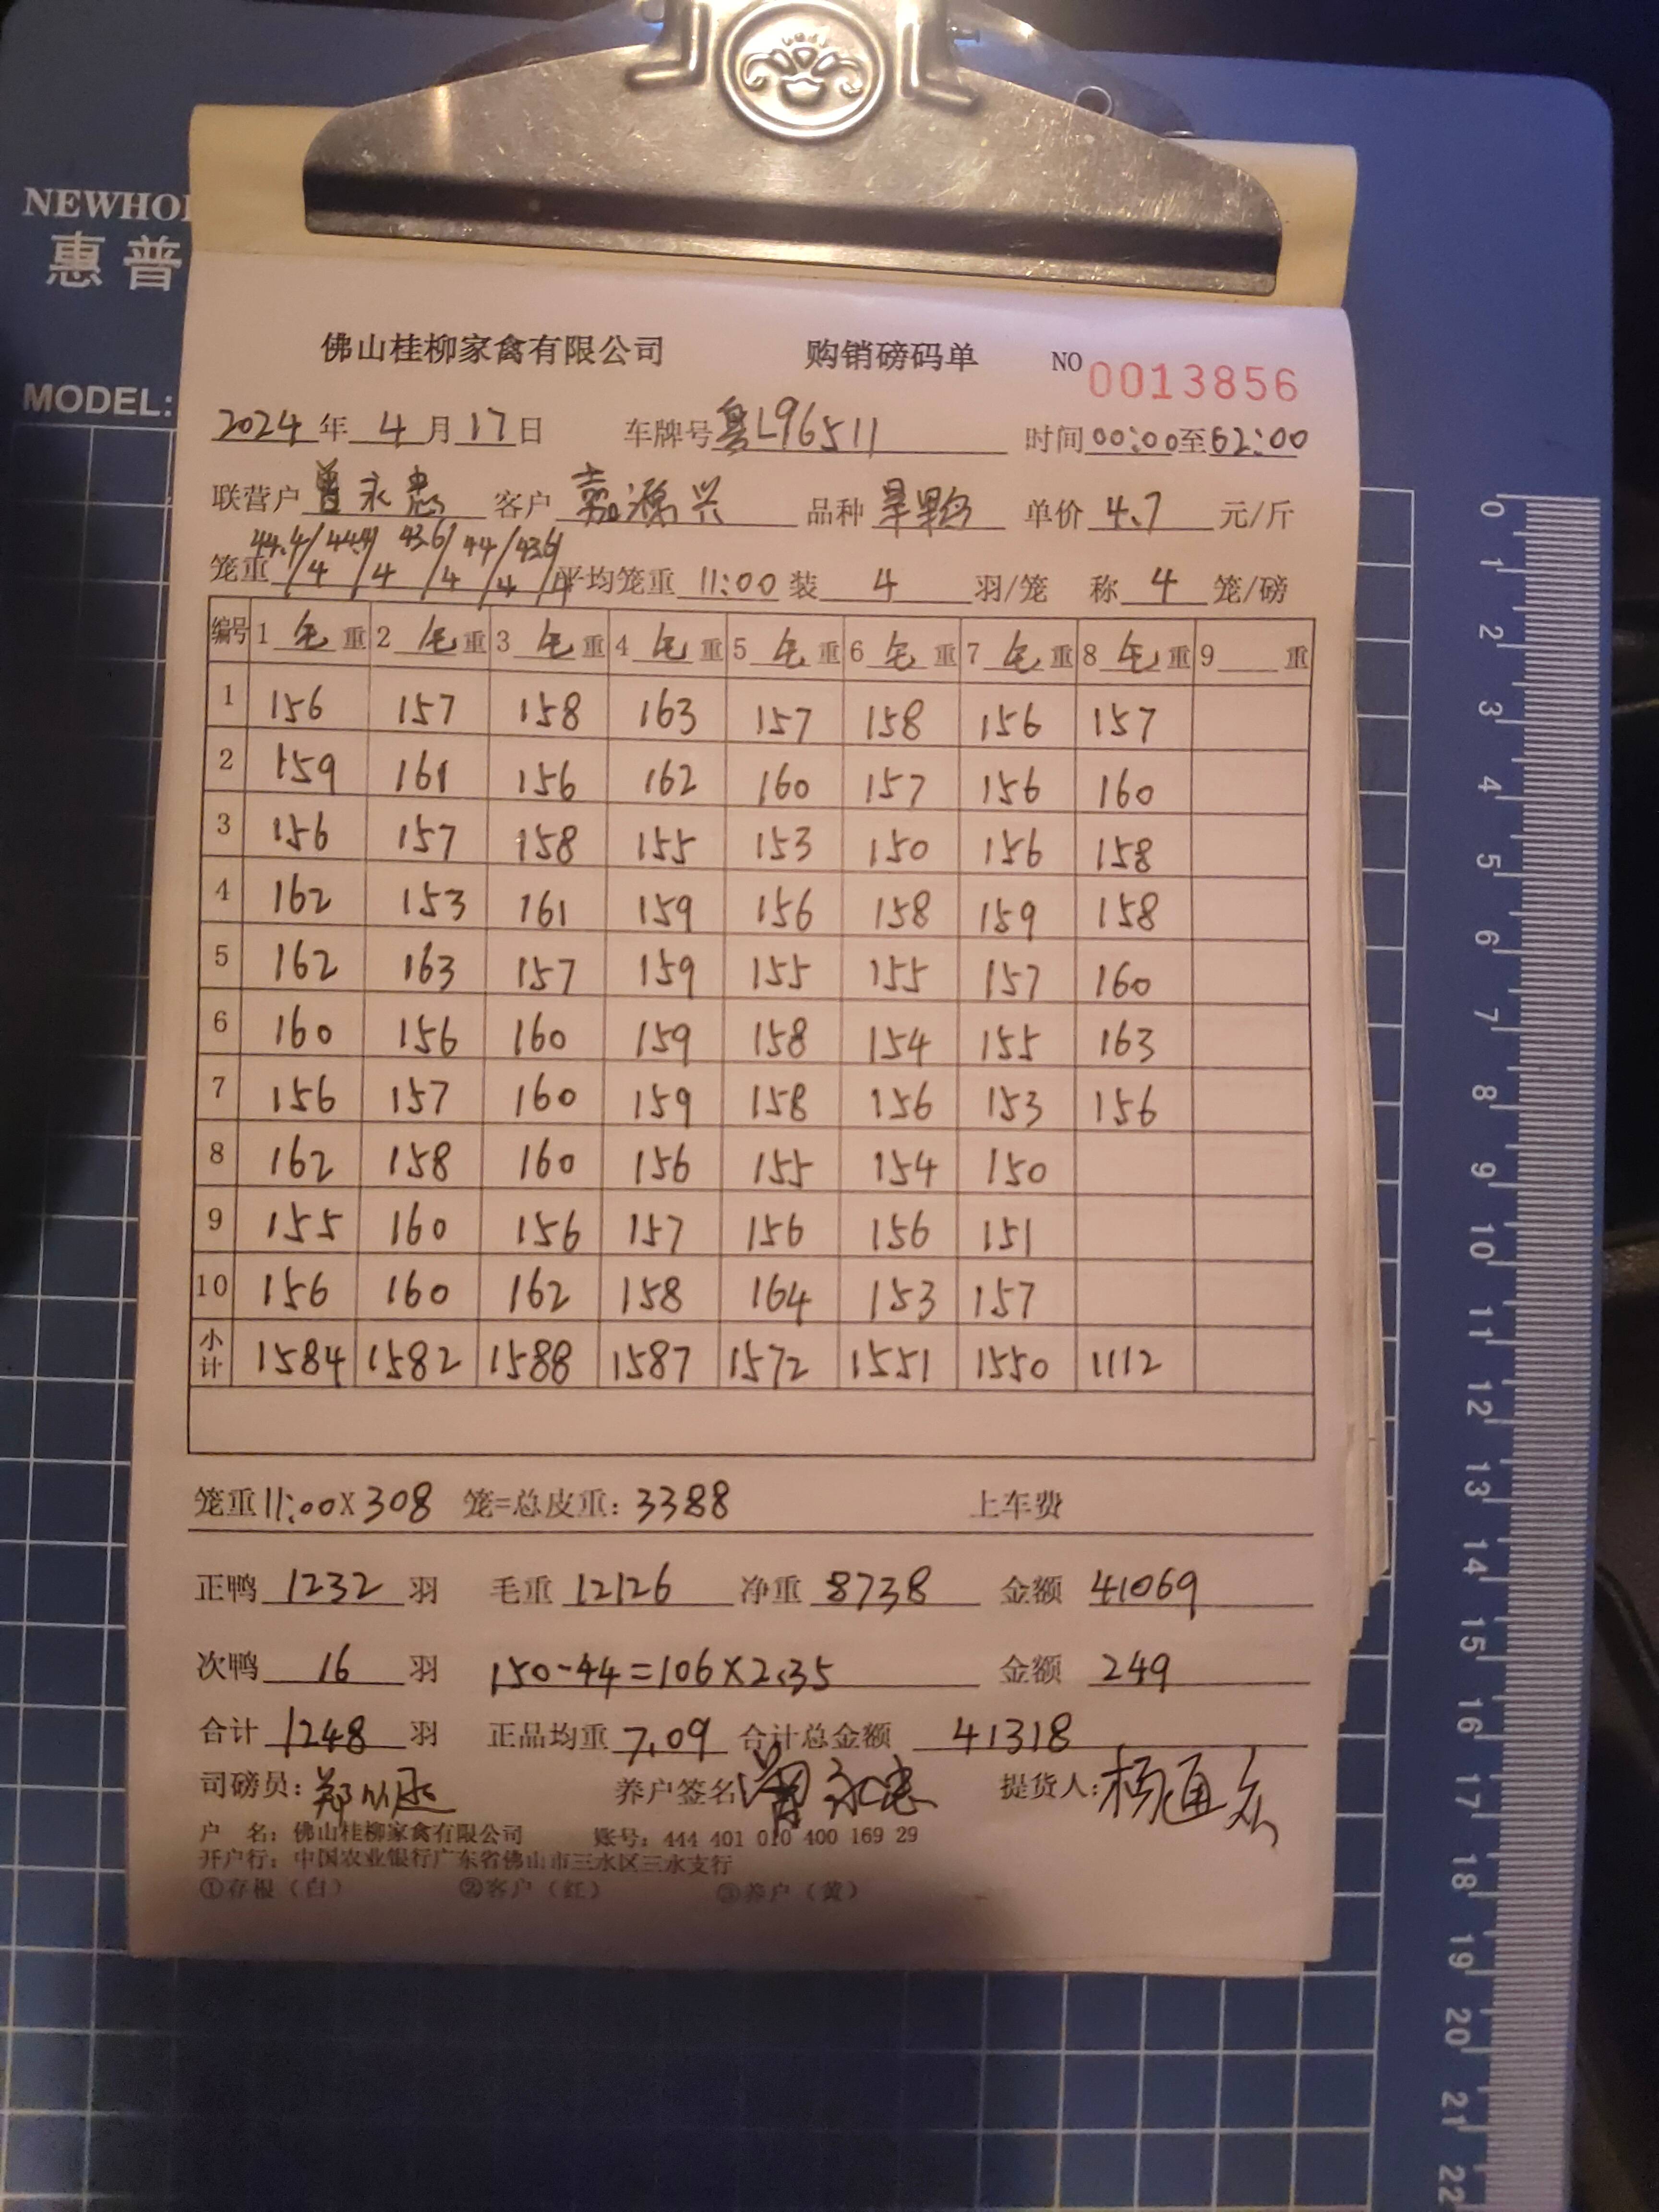 NEWHO
惠普
MODEL:
佛山桂柳家禽有限公司 购销磅码单 NO 0013856
2024年4月17日 车牌号粤L96511 时间00:00至02:00
联营户曾永忠 客户嘉源兴 品种 单价4.7元/斤
笼重44.4/4 44.4/4 43.6/4 44/4 43.6/4 平均笼重11:00装4羽/笼 称4笼/磅
编号 1毛重 2毛重 3毛重 4毛重 5毛重 6毛重 7毛重 8毛重 9 重
1 156 157 158 163 157 158 156 157
2 159 161 156 162 160 157 156 160
3 156 157 158 155 153 150 156 158
4 162 153 161 159 156 158 159 158
5 162 163 157 159 155 155 157 160
6 160 156 160 159 158 154 155 163
7 156 157 160 159 158 156 153 156
8 162 158 160 156 155 154 150
9 155 160 156 157 156 156 151
10 156 160 162 158 164 153 157
小计 1584 1582 1588 1587 1572 1551 1550 1112
笼重11:00X308 笼=总皮重: 3388 上车费
正鸭1232羽 毛重12126 净重8738 金额41069
次鸭16羽 150-44=106X2.35 金额249
合计1248羽 正品均重7.09 合计总金额41318
司磅员: 养户签名曾永忠 提货人:杨通
户 名: 佛山桂柳家禽有限公司 账号: 444 401 010 400 169 29
开户行: 中国农业银行广东省佛山市三水区三水支行
①存根(白) ②客户(红) ③养户(黄)
0
1
2
3
4
5
6
7
8
9
10
11
12
13
14
15
16
17
18
19
20
21
22